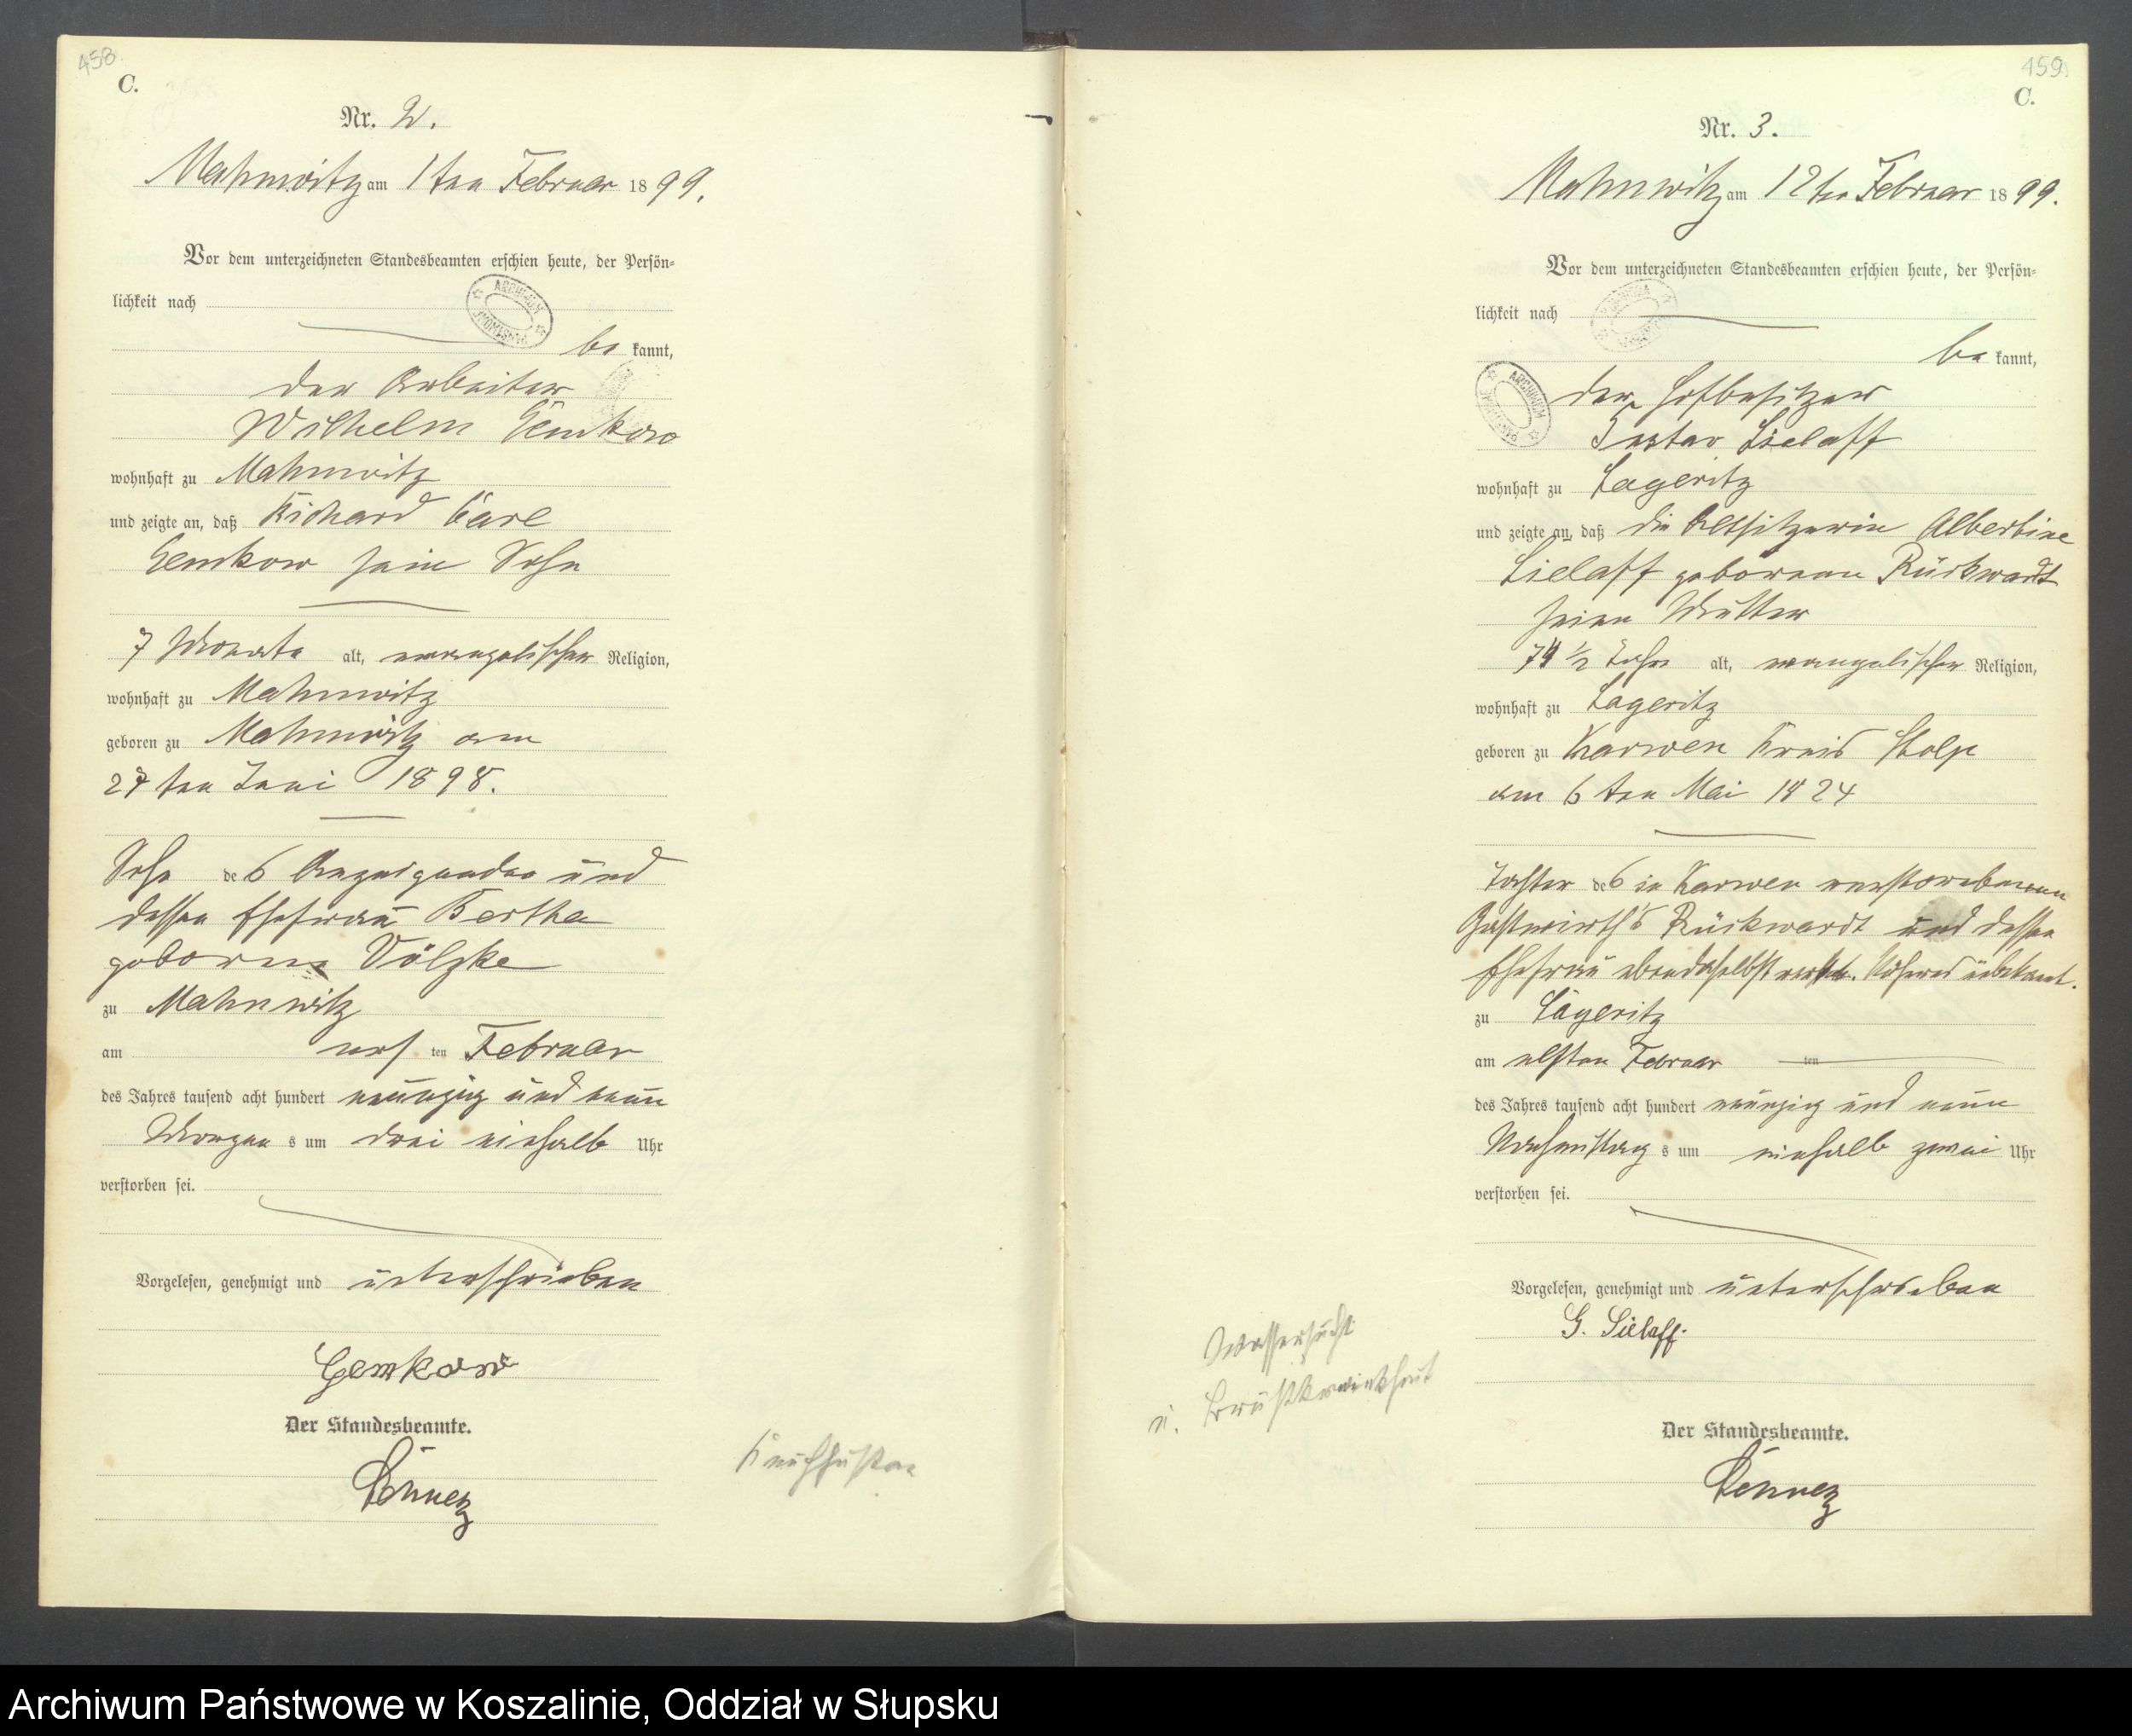 458
C.
Nr. 2.
Mahnwitz am 1ten Februar 1899.
Vor dem unterzeichneten Standesbeamten erschien heute, der Persön-
lichkeit nach
be kannt,
der Arbeiter
Wilhelm Gemkow
wohnhaft zu Mahnwitz
und zeigte an, daß Richard Carl
Gemkow sein Sohn
7 Monate alt, evangelischer Religion,
wohnhaft zu Mahnwitz
geboren zu Mahnwitz am
27ten Juni 1898.
Sohn des Anzeigenden und
dessen Ehefrau Bertha
geborene Völzke
zu Mahnwitz
am ten Februar
des Jahres tausend acht hundert neunzig und neun
Morgens um drei einhalb Uhr
verstorben sei.
Vorgelesen, genehmigt und unterschrieben
Gemkow
Der Standesbeamte.
Keuchhusten
459
C.
Nr. 3.
Mahnwitz am 12ten Februar 1899.
Vor dem unterzeichneten Standesbeamten erschien heute, der Persön-
lichkeit nach
be kannt,
der Hofbesitzer
Gustav Sielaff
wohnhaft zu Lageritz
und zeigte an, daß die Altsitzerin Albertine
Sielaff geborene Rückwardt
seine Mutter
74 1/2 Jahr alt, evangelischer Religion,
wohnhaft zu Lageritz
geboren zu Karwen Kreis Stolp
am 6ten Mai 1824
Tochter des in Karwen verstorbenen
Gastwirth's Rückwardt und dessen
Ehefrau ebendaselbst verst. Näheres unbekannt.
zu Lageritz
am elften Februar ten
des Jahres tausend acht hundert neunzig und neun
Nachmittags um einhalb zwei Uhr
verstorben sei.
Vorgelesen, genehmigt und unterschrieben
G. Sielaff.
Wassersucht
u. Brustkrankheit
Der Standesbeamte.
Archiwum Państwowe w Koszalinie, Oddział w Słupsku